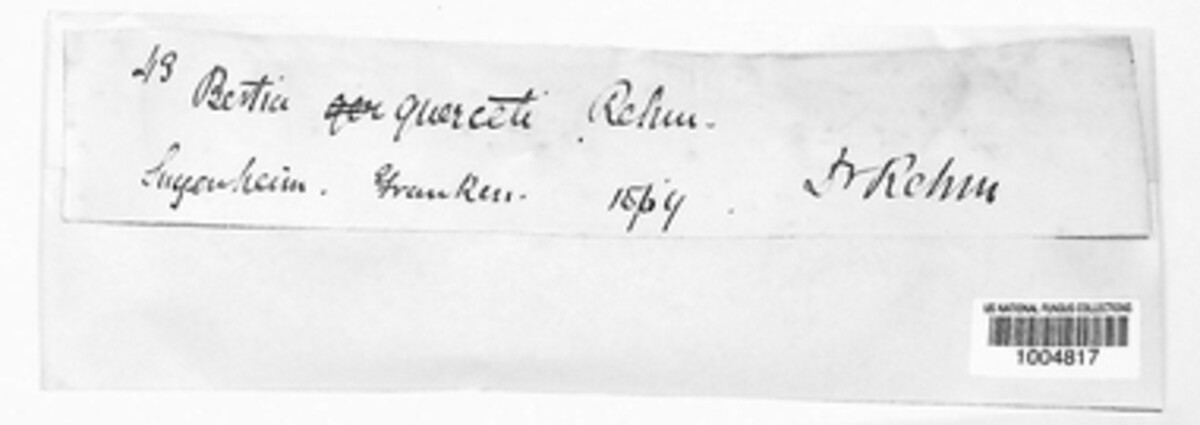 43 Bertia querceti Rehm.
Sugenheim. Franken. Dr Rehm
US NATIONAL FUNGUS COLLECTIONS
1004817